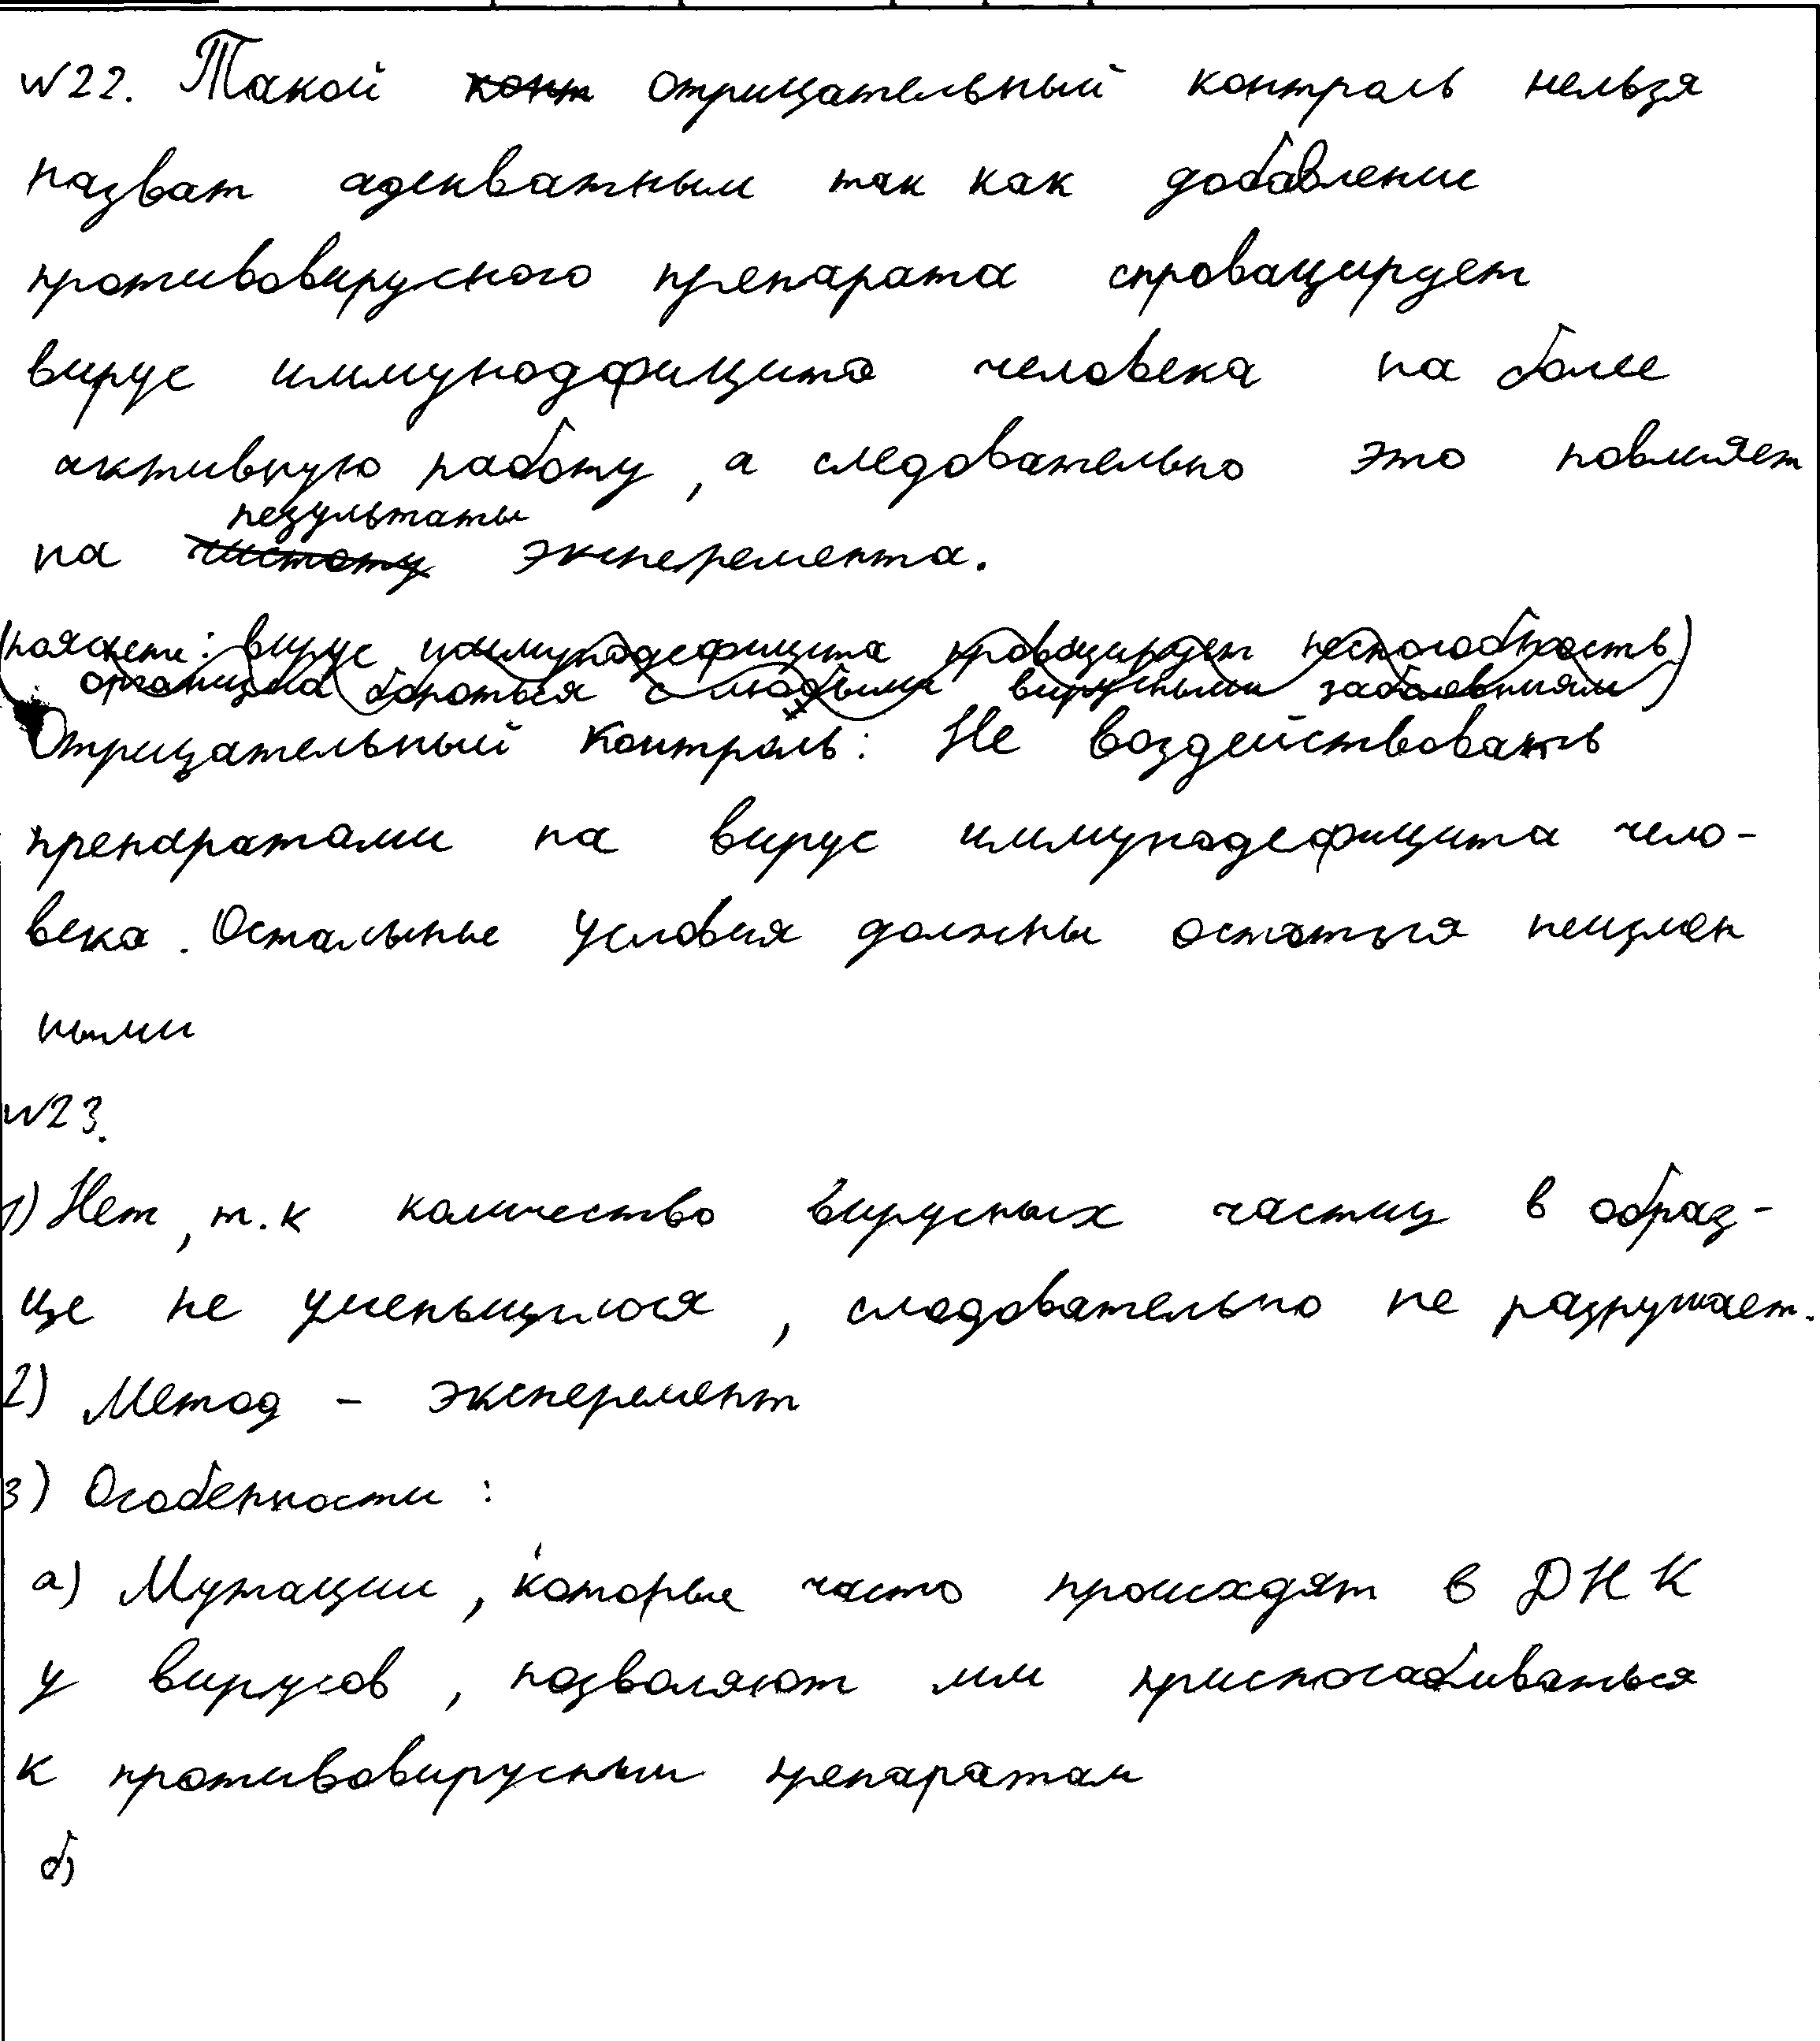 N22. Такой конт отрицательный контроль нельзя
назват адекватным так как добавление
противовирусного препарата спровацирует
вирус иммунодфицита человека на более
активную работу, а следовательно это повлияет
результаты
на чистоту эксперемента.
(пояснени: вирус иммунодефицита провоцирует неспособность)
организма бороться с любыми вирусными заболевниям)
Отрицательный контроль: Не воздействовать
препаратами на вирус иммунодефицита чело-
века. Остальные условия должны остаться неизмен
ными
N23.
1) Нет, т.к количество вирусных частиц в образ-
це не уменьшилося, следовательно не разрушает.
2) Метод - эксперемент
3) Особенности:
а) Мутации, которые часто происходят в ДНК
у вирусов, позволяют им приспосабливаться
к противовирусным препаратам
б)